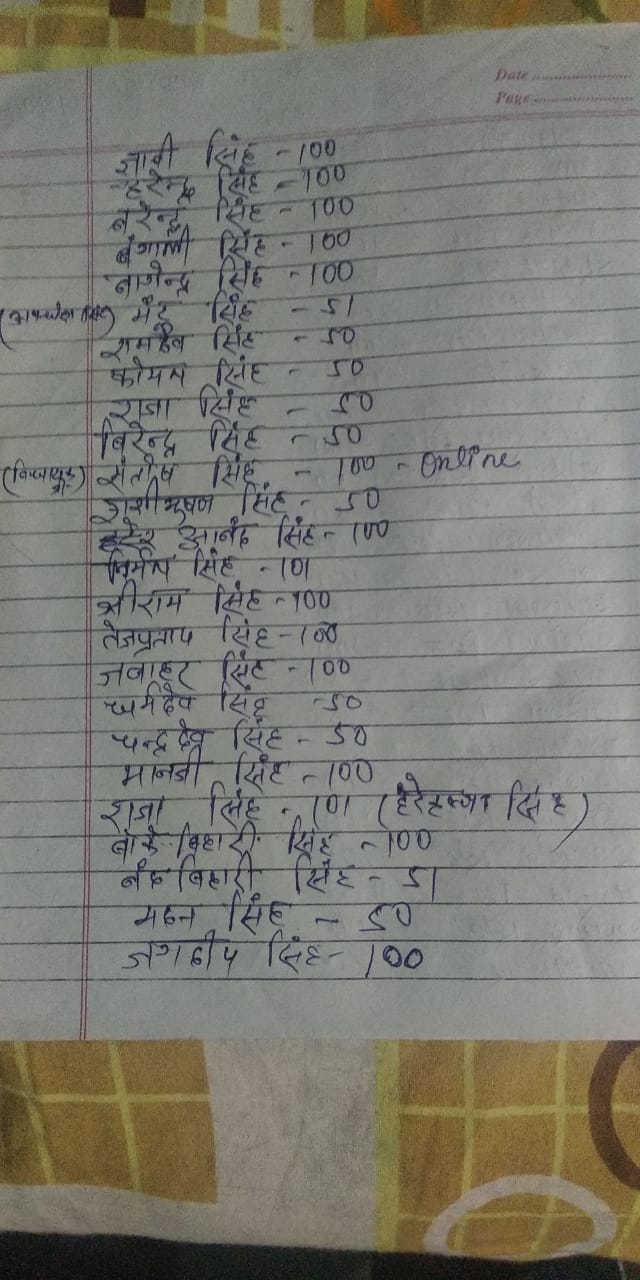 Date
Page
सिंह - 100
हरेन्द्र सिंह - 100
नरेन्द्र सिंह - 100
बंगाली सिंह - 100
नागेन्द्र सिंह - 100
मंटू सिंह - 51
रामदेव सिंह - 50
कोमल सिंह - 50
राजा सिंह - 50
बिरेन्द्र सिंह - 50
संतोष सिंह - 100 - online
शशीभूषण सिंह - 50
आनंद सिंह - 100
निर्मल सिंह - 101
श्रीराम सिंह - 100
तेजप्रताप सिंह - 100
जवाहर सिंह - 100
धर्मदेव सिंह - 50
चन्द्रदेव सिंह - 50
मानजी सिंह - 100
राजा सिंह - 101 ( सिंह )
बिहारी सिंह - 100
नंद बिहारी सिंह - 51
मदन सिंह - 50
जगदीप सिंह - 100